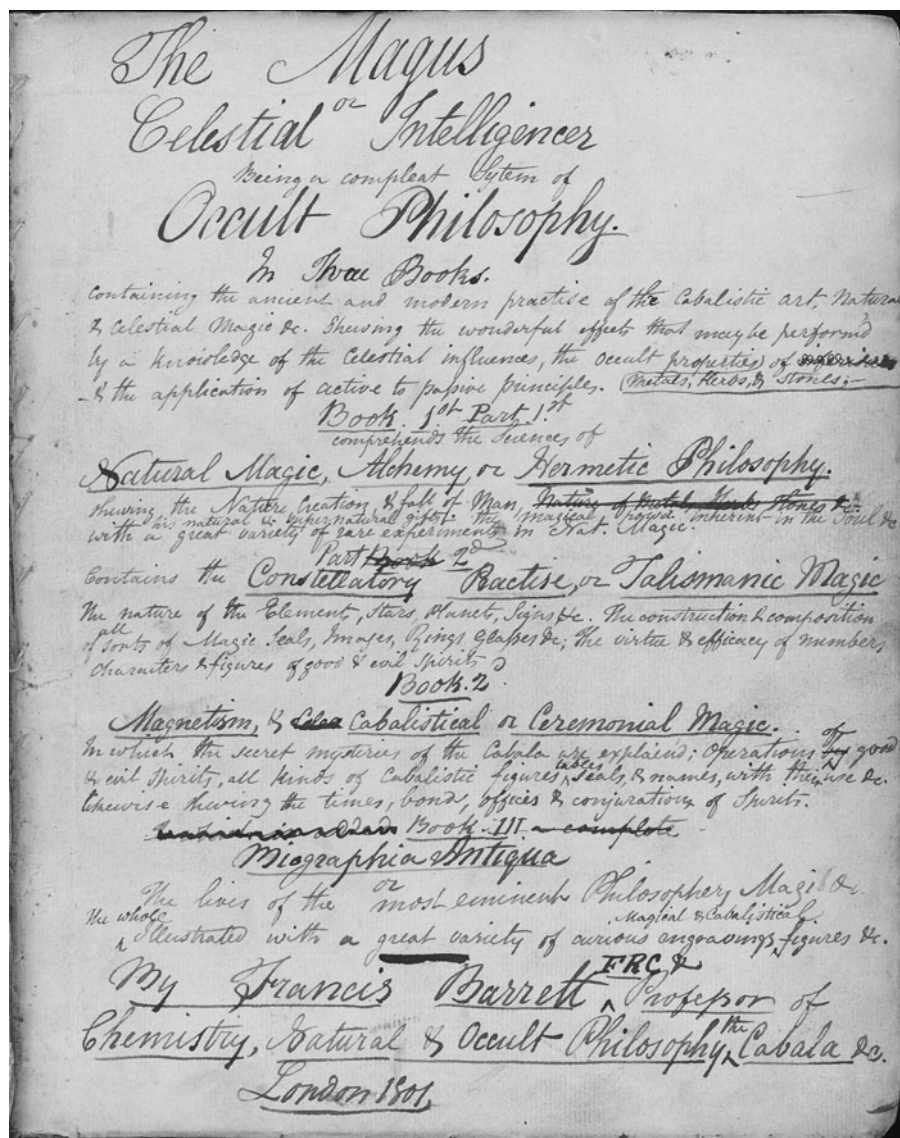 The Magus
or
Celestial Intelligencer
Being a compleat Sytem of
Occult Philosophy.
In Three Books.
Containing the ancient and modern practise of the Cabalistic art, Natural
& Celestial Magic &c. Shewing the wonderful effects that may be performd
by a knowledge of the Celestial influences, the occult properties of
Metals, Herbs, & Stones;—
& the application of active to passive principles.
Book 1st Part 1st
comprehends the Sciences of
Natural Magic, Alchemy, or Hermetic Philosophy.
shewing the Nature, Creation, & fall of Man, Nature of Metals Herbs Stones &c.
his natural & supernatural gifts the magical power inherent in the Soul &c
with a great variety of rare experiments in Nat. Magic.
Part Book 2d
Contains the Constellatory Practise, or Talismanic Magic
The nature of the Element, Stars, Planets, Signs &c. The construction & composition
all
of Sorts of Magic Seals, Images, Rings Glasses &c; the virtue & efficacy of numbers
characters & figures of good & evil Spirits
Book. 2
Magnetism, & Cabalistical or Ceremonial Magic.
In which the secret mysteries of the Cabala are explaind; Operations of by good
& evil Spirits, all kinds of Cabalistic figures, tables Seals, & names, with their use &c.
likewise shewing the times, bond, offices & conjuration of Spirits.
Book. III complete
Biographia Antiqua
or
The lives of the most eminent Philosophers, Magi &c.
the whole
Magical & Cabalistical
Illustrated with a great variety of curious engravings, figures &c.
By Francis Barrett FRC & Professor of
Chemistry, Natural & Occult Philosophy, the Cabala &c.
London 1801.